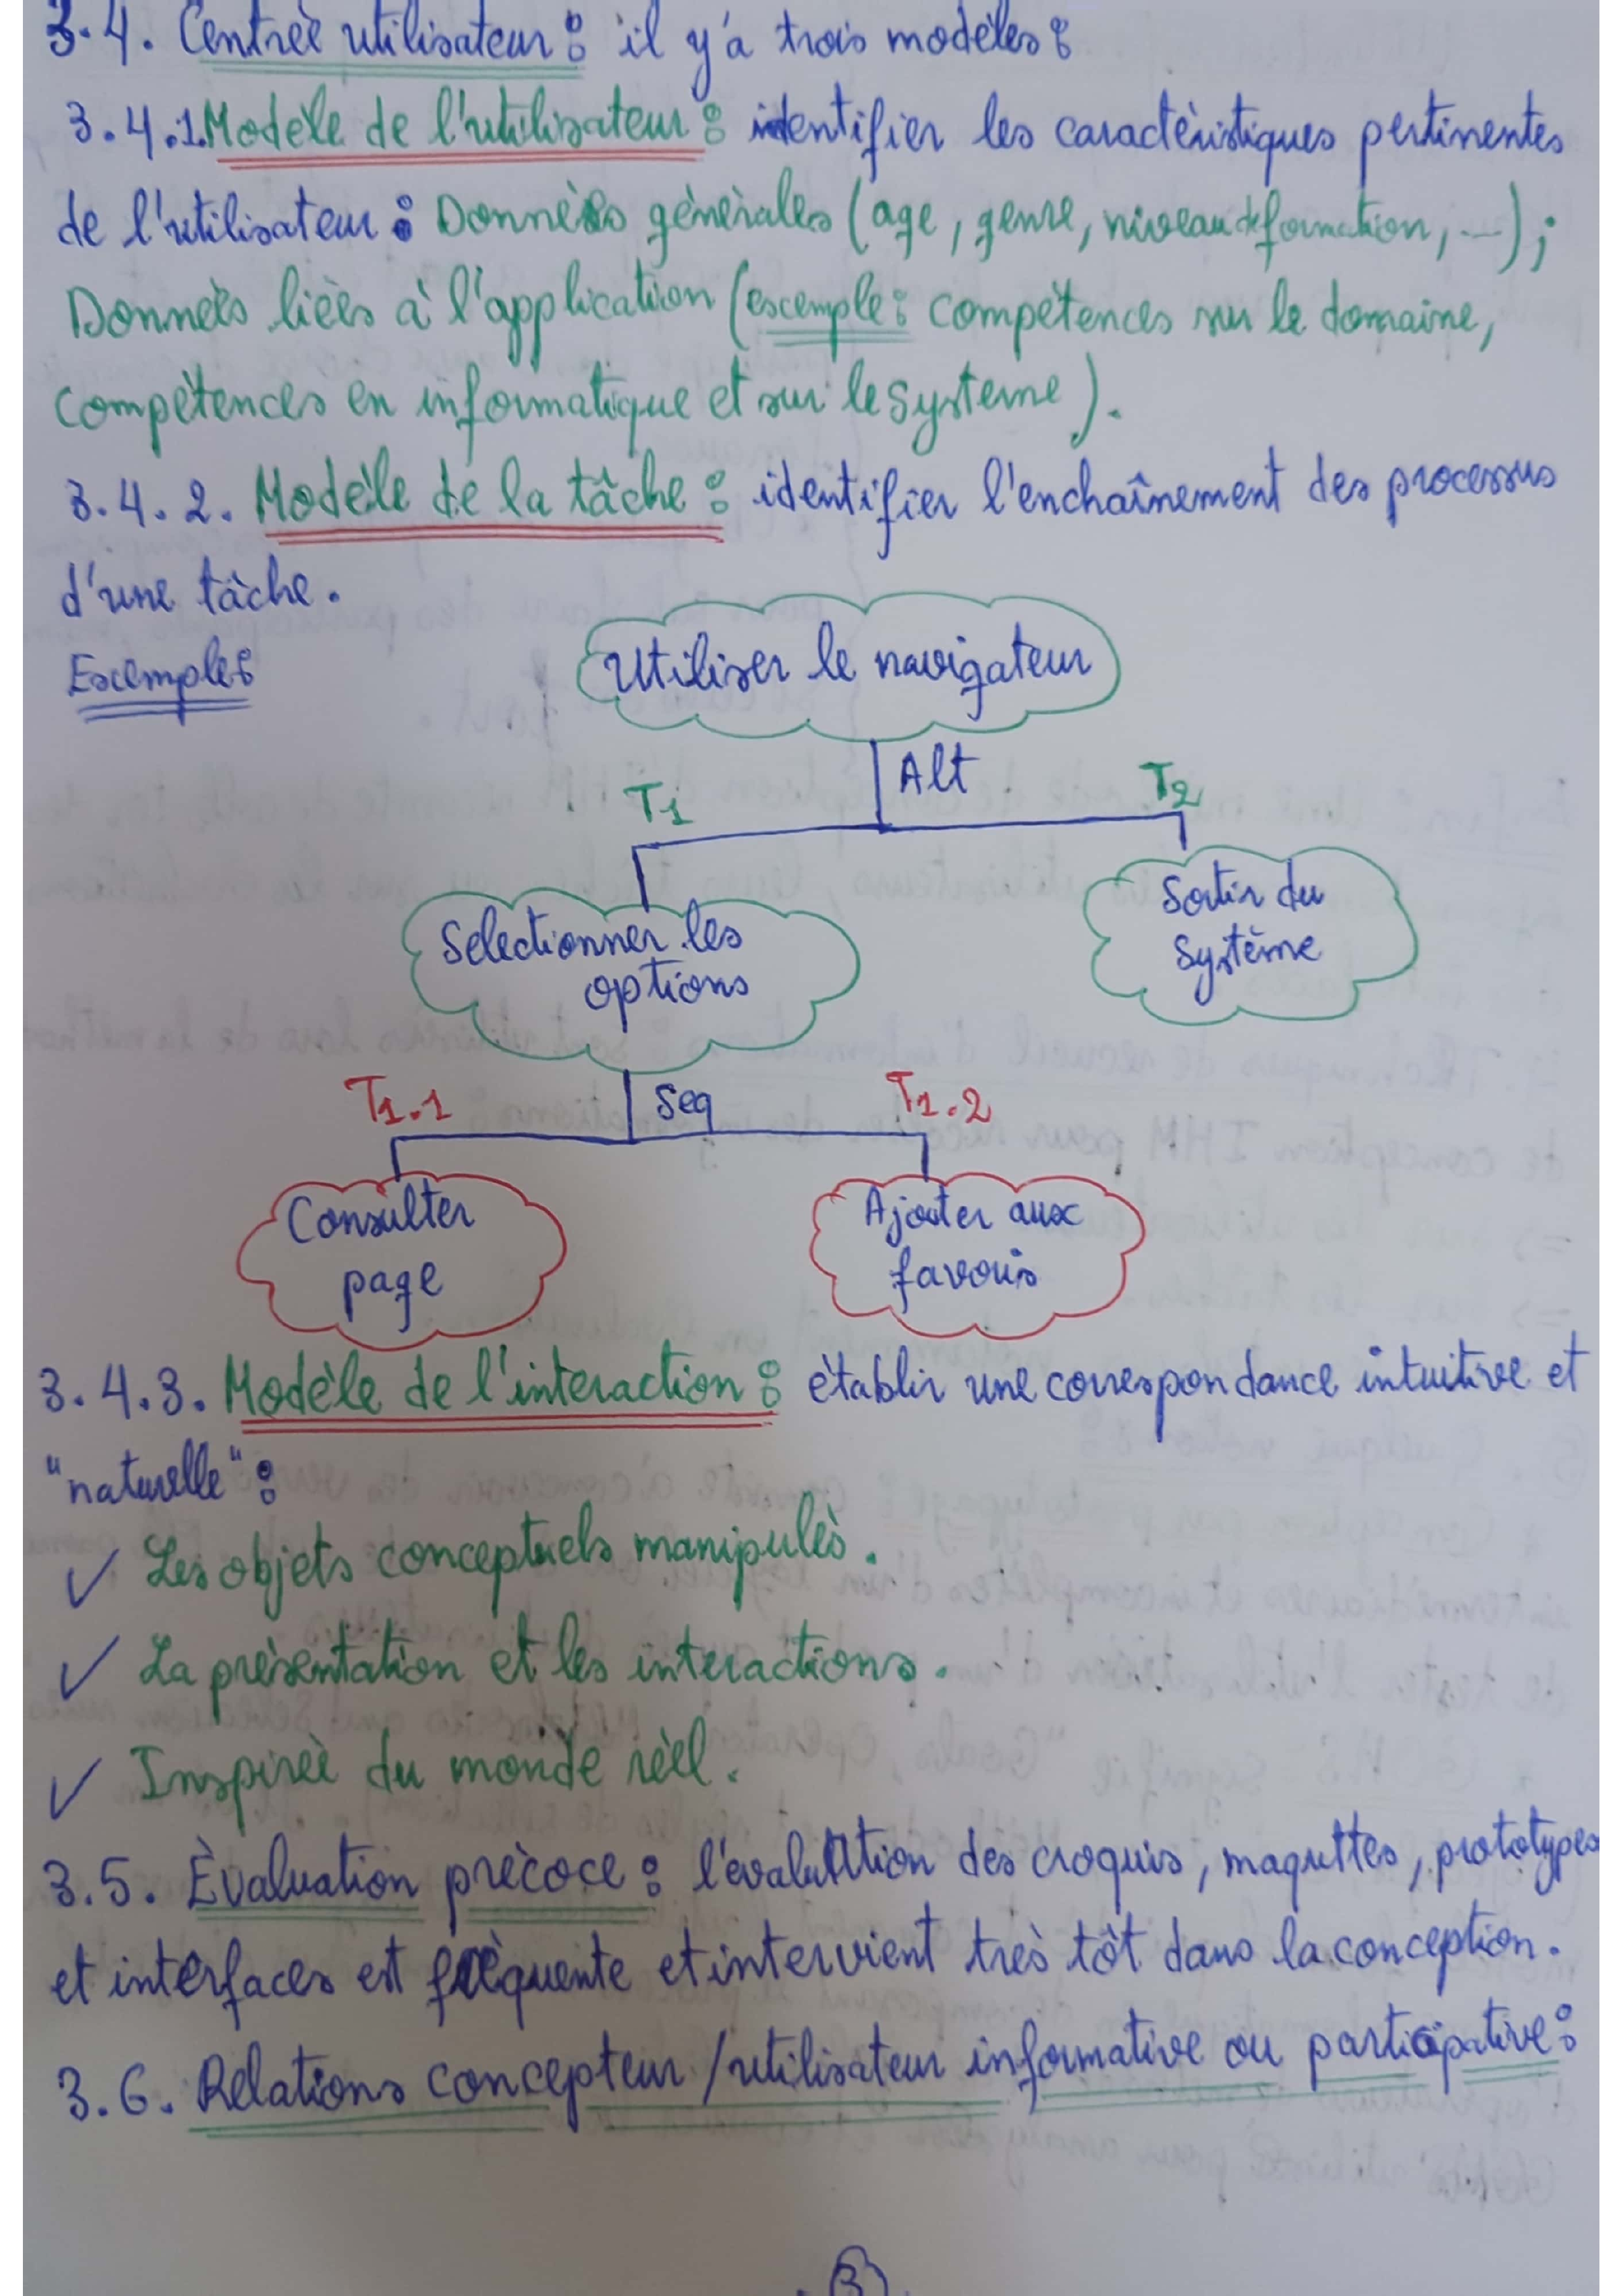 3.4. Centrée utilisateur : il y'a trois modèles :
3.4.1. Modèle de l'utilisateur : identifier les caractéristiques pertinentes
de l'utilisateur : Données générales (age, genre, niveau de formation, ...);
Données liées à l'application (exemple : compétences sur le domaine,
compétences en informatique et sur le système).
3.4.2. Modèle de la tâche : identifier l'enchaînement des processus
d'une tâche.
Exemple :
Utiliser le navigateur
Alt
T1
T2
Selectionner les
options
Sortir du
système
Seq
T1.1
T1.2
Consulter
page
Ajouter aux
favoris
3.4.3. Modèle de l'interaction : établir une correspondance intuitive et
"naturelle" :
✓ Les objets conceptuels manipulés.
✓ La présentation et les interactions.
✓ Inspirée du monde réel.
3.5. Évaluation précoce : l'évaluation des croquis, maquettes, prototypes
et interfaces est fréquente et intervient très tôt dans la conception.
3.6. Relations concepteur / utilisateur informative ou participative :
3